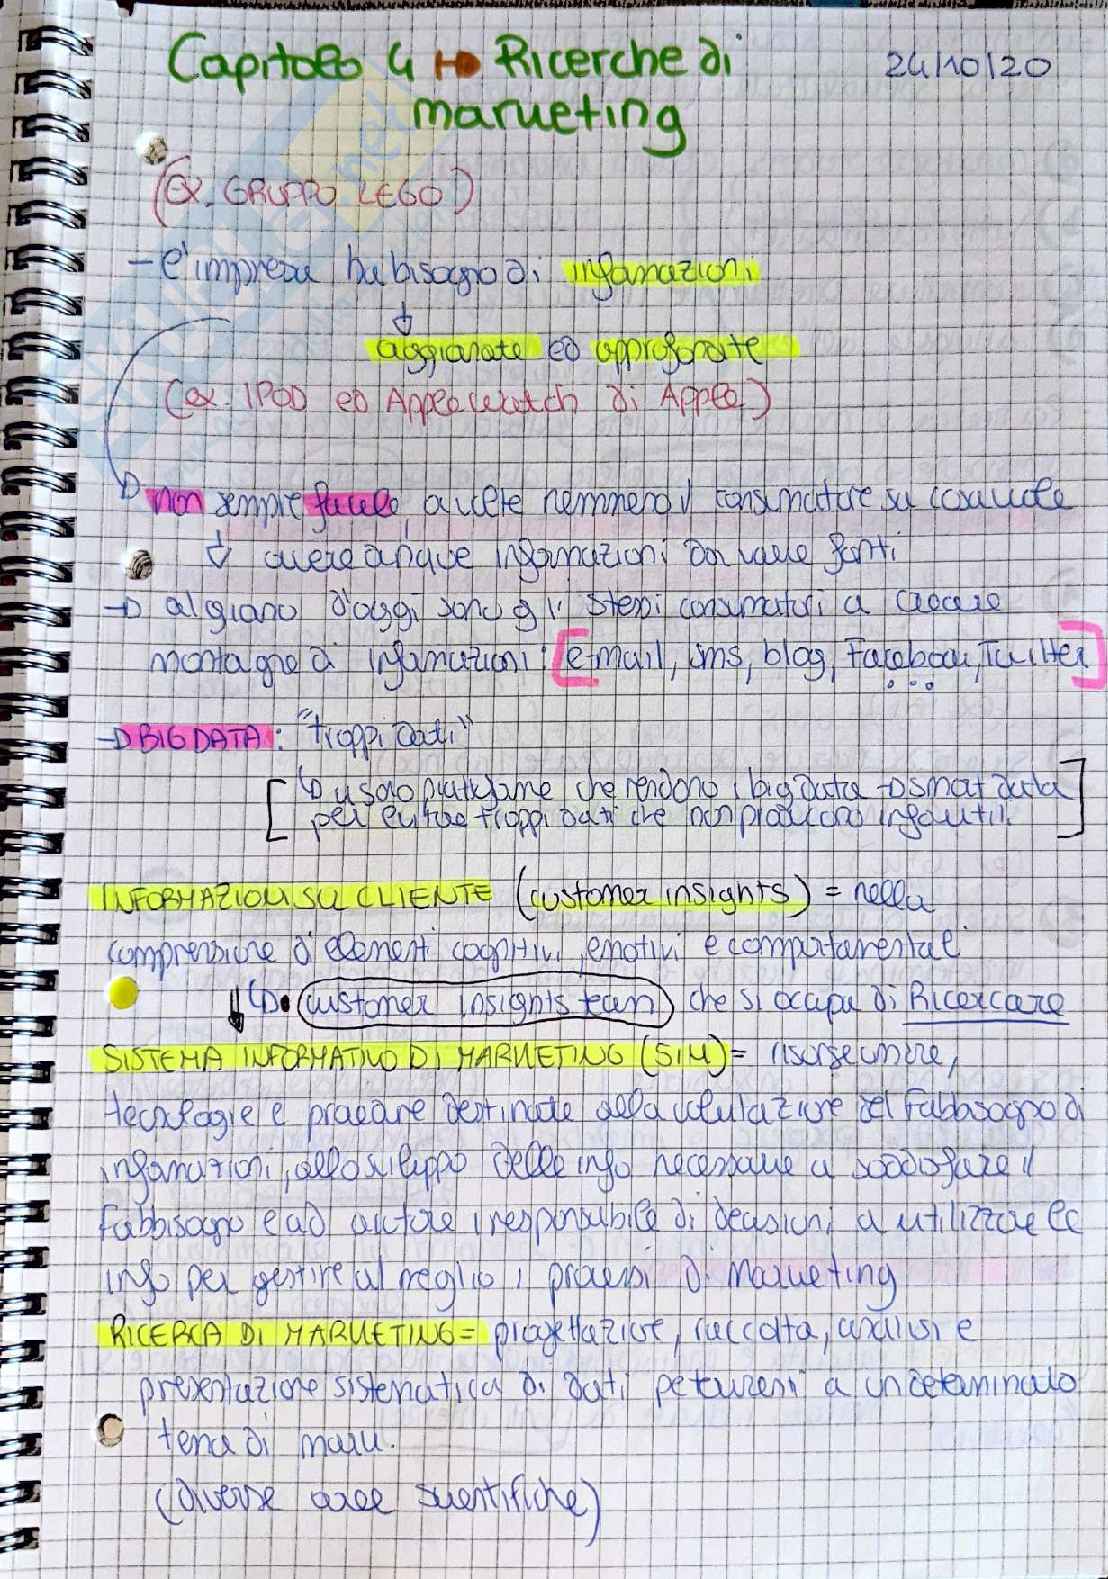 Capitolo 4 → Ricerche di
marketing
24/10/20
(ex. GRUPPO LEGO)
- l'impresa ha bisogno di informazioni
↓
aggiornate ed approfondite
(ex. IPOD ed Apple watch di Apple)
→ non sempre facile, a volte nemmeno il consumatore sa cosa vuole
↓ avere dunque informazioni da varie fonti
→ al giorno d'oggi sono gli stessi consumatori a creare
montagne di informazioni: [e-mail, sms, blog, Facebook, Twitter]
...
→ BIG DATA: "troppi dati"
[↳ usano piattaforme che rendono i big data → smart data
per evitare troppi dati che non producono info utili.]
INFORMAZIONI SUL CLIENTE (customer insights) = nella
comprensione di elementi cognitivi, emotivi e comportamentali
↓ ↳ • customer insights team che si occupa di Ricercare
SISTEMA INFORMATIVO DI MARKETING (SIM) = risorse umane,
tecnologie e procedure destinate alla valutazione del fabbisogno di
informazioni, allo sviluppo delle info necessarie a soddisfare il
fabbisogno e ad aiutare i responsabili di decisioni a utilizzare le
info per gestire al meglio i processi di marketing
RICERCA DI MARKETING = progettazione, raccolta, analisi e
presentazione sistematica di dati pertinenti a un determinato
tema di mark.
(diverse aree scientifiche)